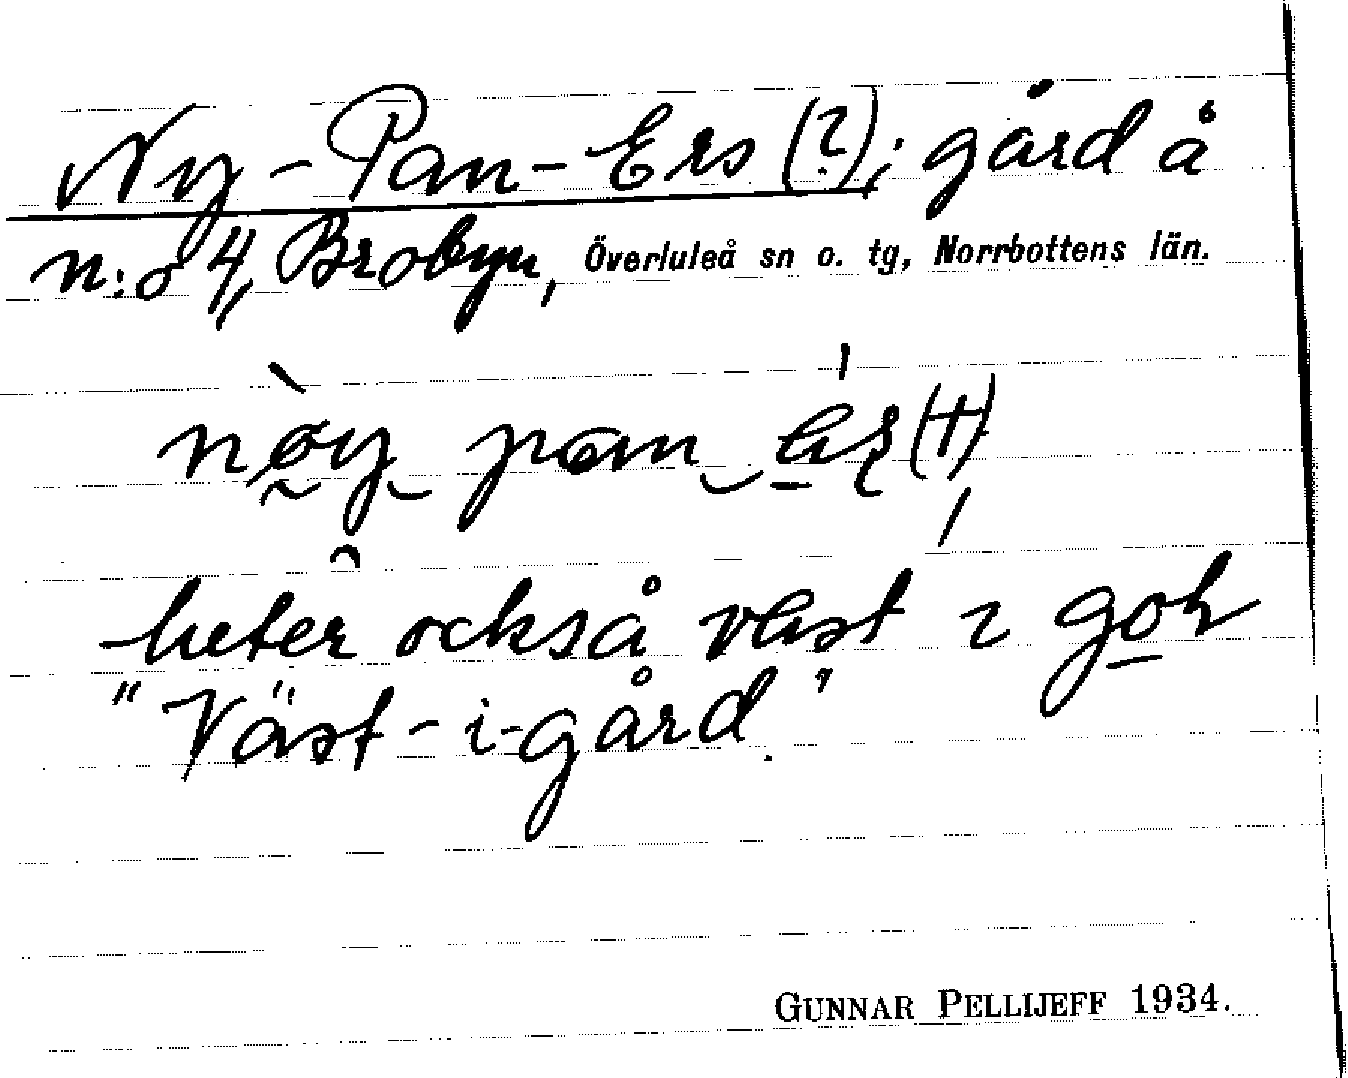 Ny-Pan-Ers (?); gård å
n:o 4, Brobyn, Överluleå sn o. tg, Norrbottens län.
heter också väst i
"Väst-i-gård".
GUNNAR PELLIJEFF 1934.